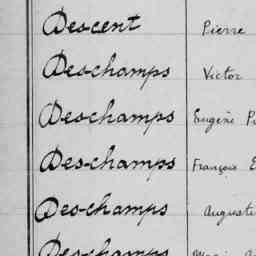 Descent Pierre
Deschamps Victor
Deschamps Eugène
Deschamps François
Deschamps
Deschamps